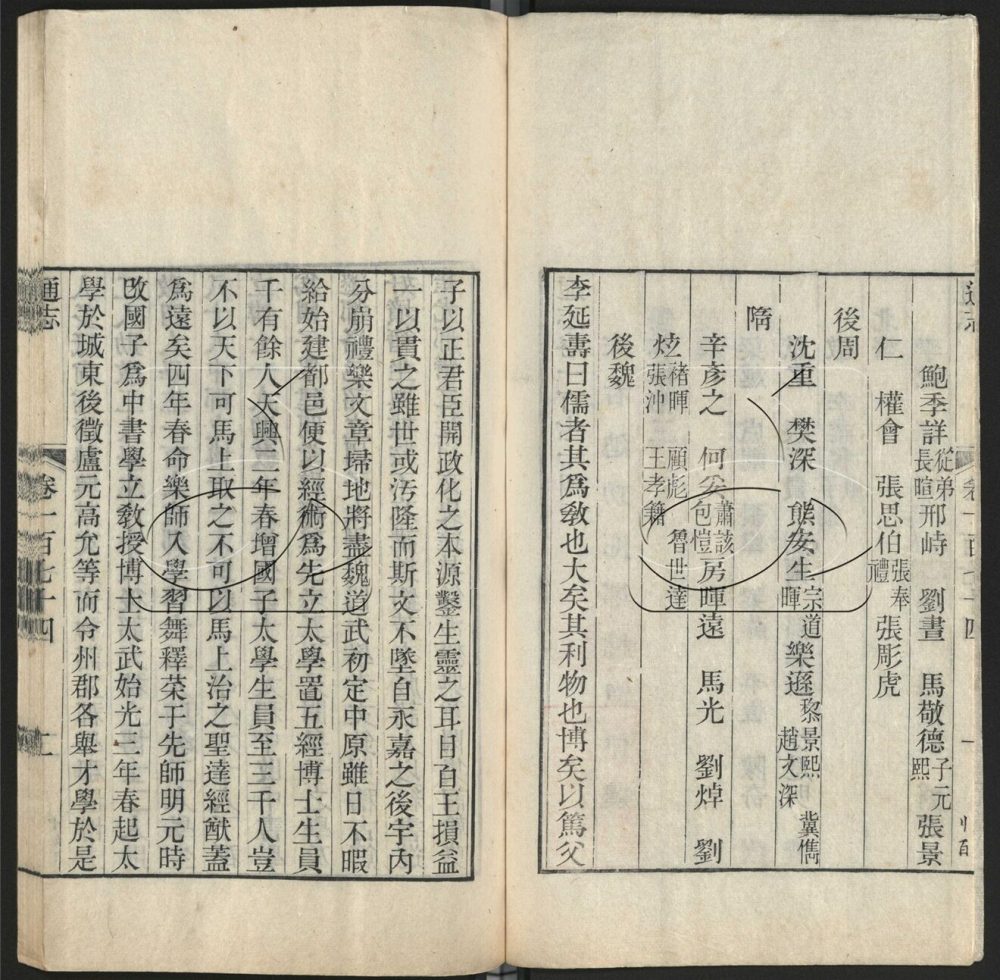 鮑季詳從弟長暄 邢峙 劉晝 馬敬德子元熙 張景
仁 權會 張思伯張奉禮 張彫虎
後周
沈重 樊深 熊安生宗道暉 樂遜黎景熙 趙文深 冀儁
隋
辛彥之 何妥蕭該 包愷 房暉遠 馬光 劉焯 劉
炫褚暉 張沖 顧彪 王孝籍 魯世達
後魏
李延壽曰儒者其爲敎也大矣其利物也博矣以篤父
子以正君臣開政化之本源鑿生靈之耳目百王損益
一以貫之雖世或汚隆而斯文不墜自永嘉之後宇內
分崩禮樂文章埽地將盡魏道武初定中原雖日不暇
給始建都邑便以經術爲先立太學置五經博士生員
千有餘人天興二年春增國子太學生員至三千人豈
不以天下可馬上取之不可以馬上治之聖達經猷蓋
爲遠矣四年春命樂師入學習舞釋菜于先師明元時
改國子爲中書學立敎授博士太武始光三年春起太
學於城東後徵盧元高允等而令州郡各舉才學於是
通志 卷一百七十四